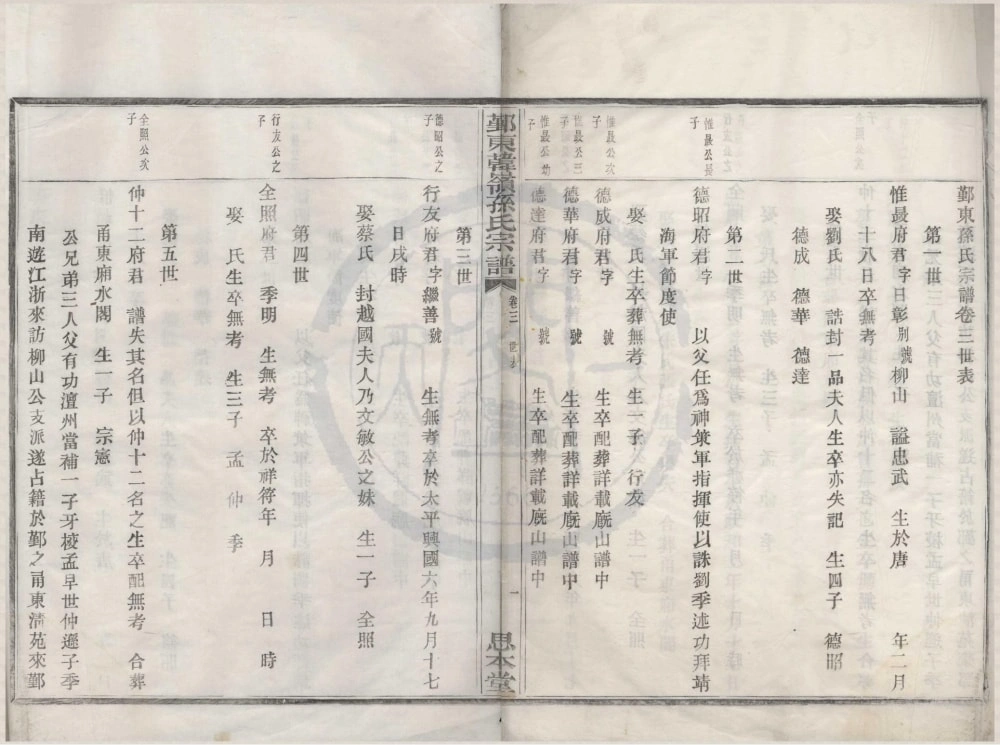 鄞東孫氏宗譜卷三世表
第一世
惟晸府君字日彰別號柳山　謚忠武　生於唐　年二月
二十八日卒無考
娶劉氏　誥封一品夫人生卒亦失記　生四子　德昭
德成　德華　德達
第二世
惟晸公長
子
德昭府君字　以父任爲神策軍指揮使以誅劉季述功拜靖
海軍節度使
娶　氏生卒葬無考　生一子　行友
惟晸公次
子
德成府君字　號　生卒配葬詳載厩山譜中
惟晸公三
子
德華府君字　號　生卒配葬詳載厩山譜中
惟晸公幼
子
德達府君字　號　生卒配葬詳載厩山譜中
鄞東韓嶺孫氏宗譜　卷三　世表　一　思本堂
第三世
德昭公之
子
行友府君字繼善號　生無考卒於太平興國六年九月十七
日戌時
娶蔡氏　封越國夫人乃文敏公之妹　生一子　全照
第四世
行友公之
子
全照府君　季明　生無考　卒於祥符年　月　日　時
娶　氏生卒無考　生三子　孟　仲　季
第五世
全照公次
子
仲十二府君　譜失其名但以仲十二名之生卒配無考　合葬
甬東廟水閣　生一子　宗憲
公兄弟三人父有功澶州當補一子牙校孟早世仲遜子季
南遊江浙來訪柳山公支派遂占籍於鄞之甬東清苑來鄞